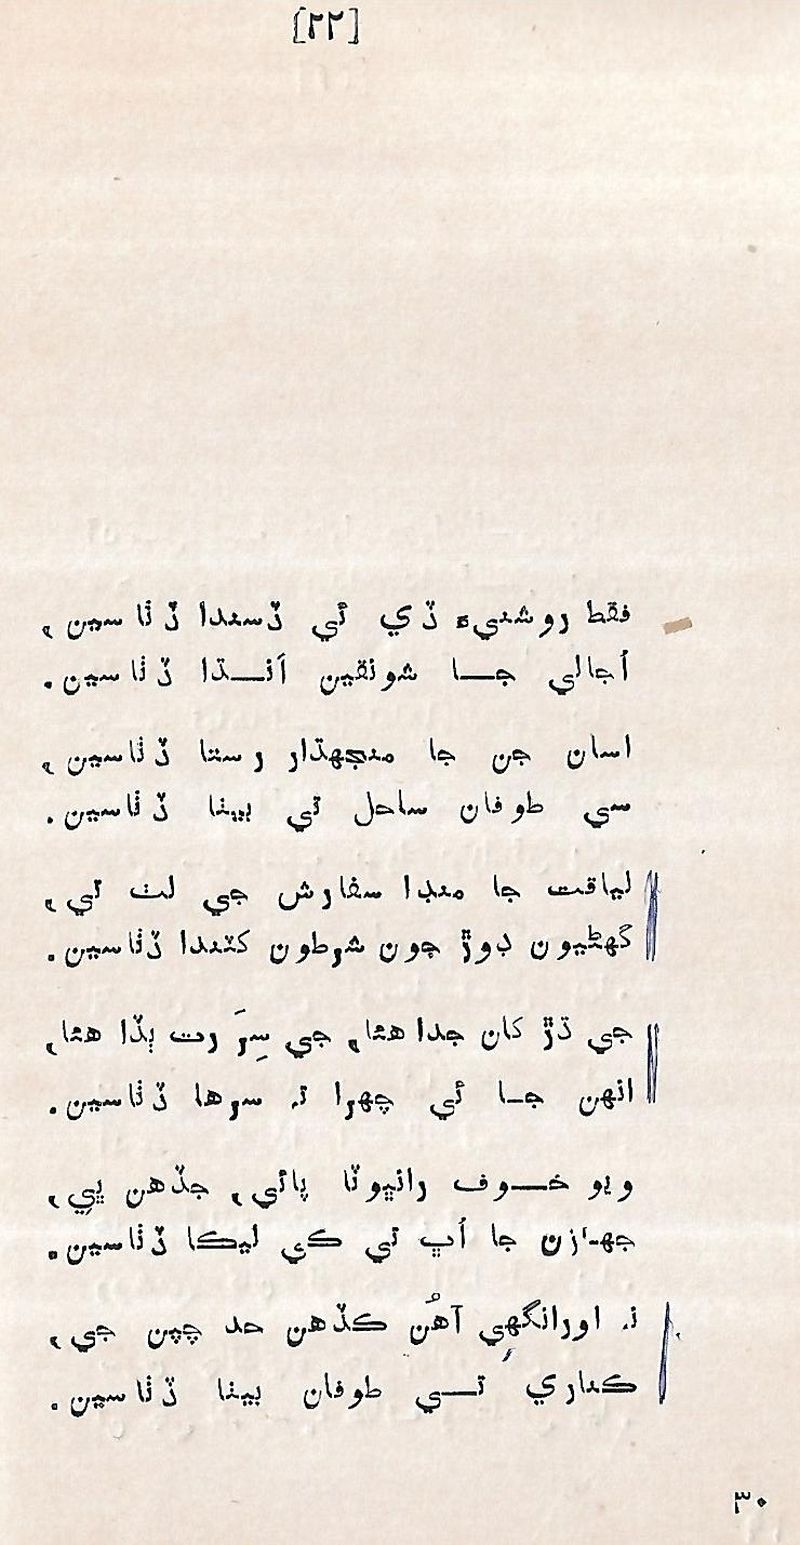 [۲۲]
فقط روشنيءَ ڏي ئي ڏسندا ڏٺا سين،
اُجالي جــا شونقين اَنــڌا ڏٺاسين.
اسان جن جا منجهڌار رستا ڏٺاسين،
سي طوفان ساحل تي بيٺا ڏٺاسين.
لياقت جا منڊا سفارش جي لٺ تي،
گهڻيون ڊوڙ جون شرطون کٽندا ڏٺاسين.
جي ڌڙ کان جدا هئا، جي سِرَ رت ٻڏا هئا،
انهن جــا ئي چهرا تہ سرها ڏٺاسين.
ويو خــوف رانڀوٽا پائي، جڏهن ڀي،
جهــازن جا اُڀ تي ڪي ليڪا ڏٺاسين.
نہ اورانگهي آهُن ڪڏهن حد چپن جي،
ڪناري تــي طوفان بيٺا ڏٺاسين.
۳۰